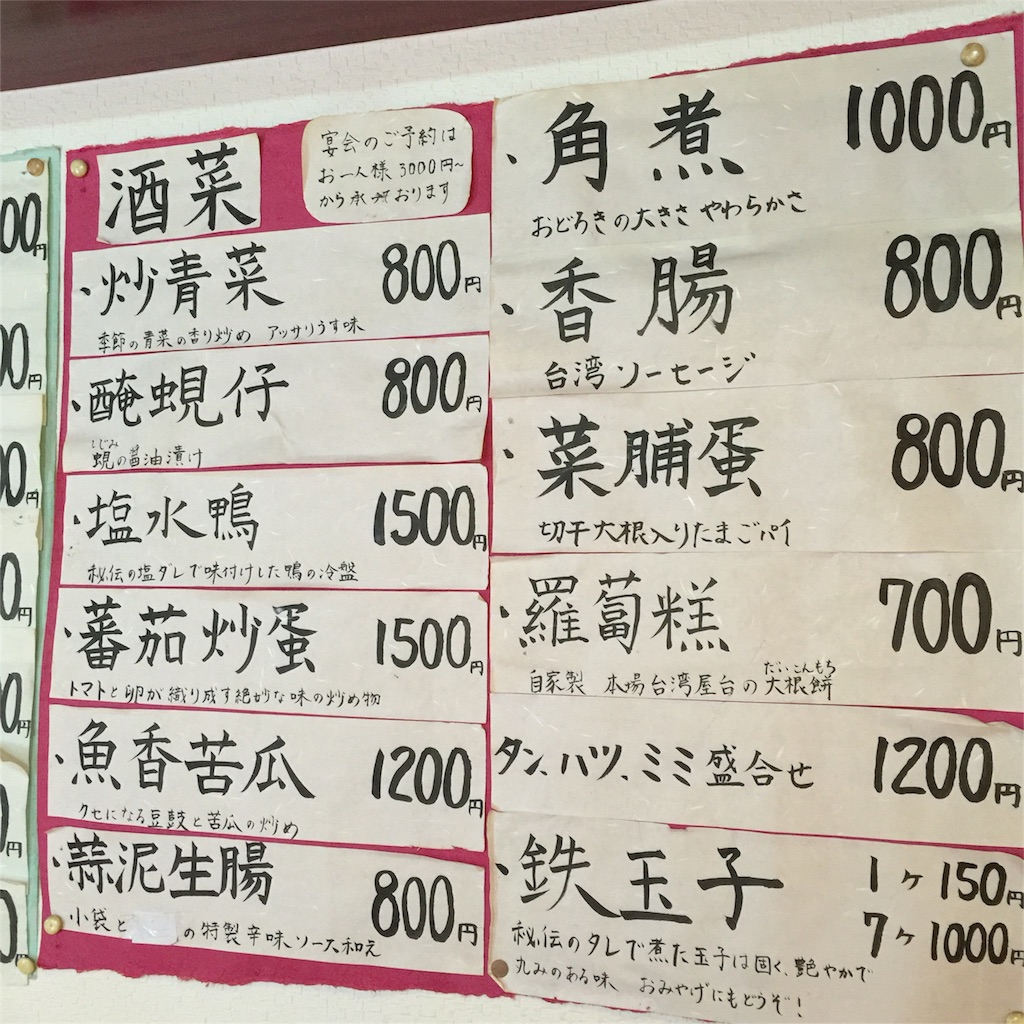 酒菜
宴会のご予約は
お一人様3000円~
から承っております
・炒青菜 800円
季節の青菜の香り炒め アッサリうす味
・醃蜆仔 800円
しじみ
蜆の醤油漬け
・塩水鴨 1500円
秘伝の塩ダレで味付けした鴨の冷盤
・蕃茄炒蛋 1500円
トマトと卵が織り成す絶妙な味の炒め物
・魚香苦瓜 1200円
クセになる豆鼓と苦瓜の炒め
・蒜泥生腸 800円
小袋と
の特製辛味ソース和え
・角煮 1000円
おどろきの大きさ やわらかさ
・香腸 800円
台湾ソーセージ
・菜脯蛋 800円
切干大根入りたまごパイ
・羅蔔糕 700円
だいこんもち
自家製 本場台湾屋台の大根餅
タン、ハツ、ミミ盛合せ 1200円
・鉄玉子 1ヶ 150円
7ヶ 1000円
秘伝のタレで煮た玉子は固く、艶やかで
丸みのある味 おみやげにもどうぞ!